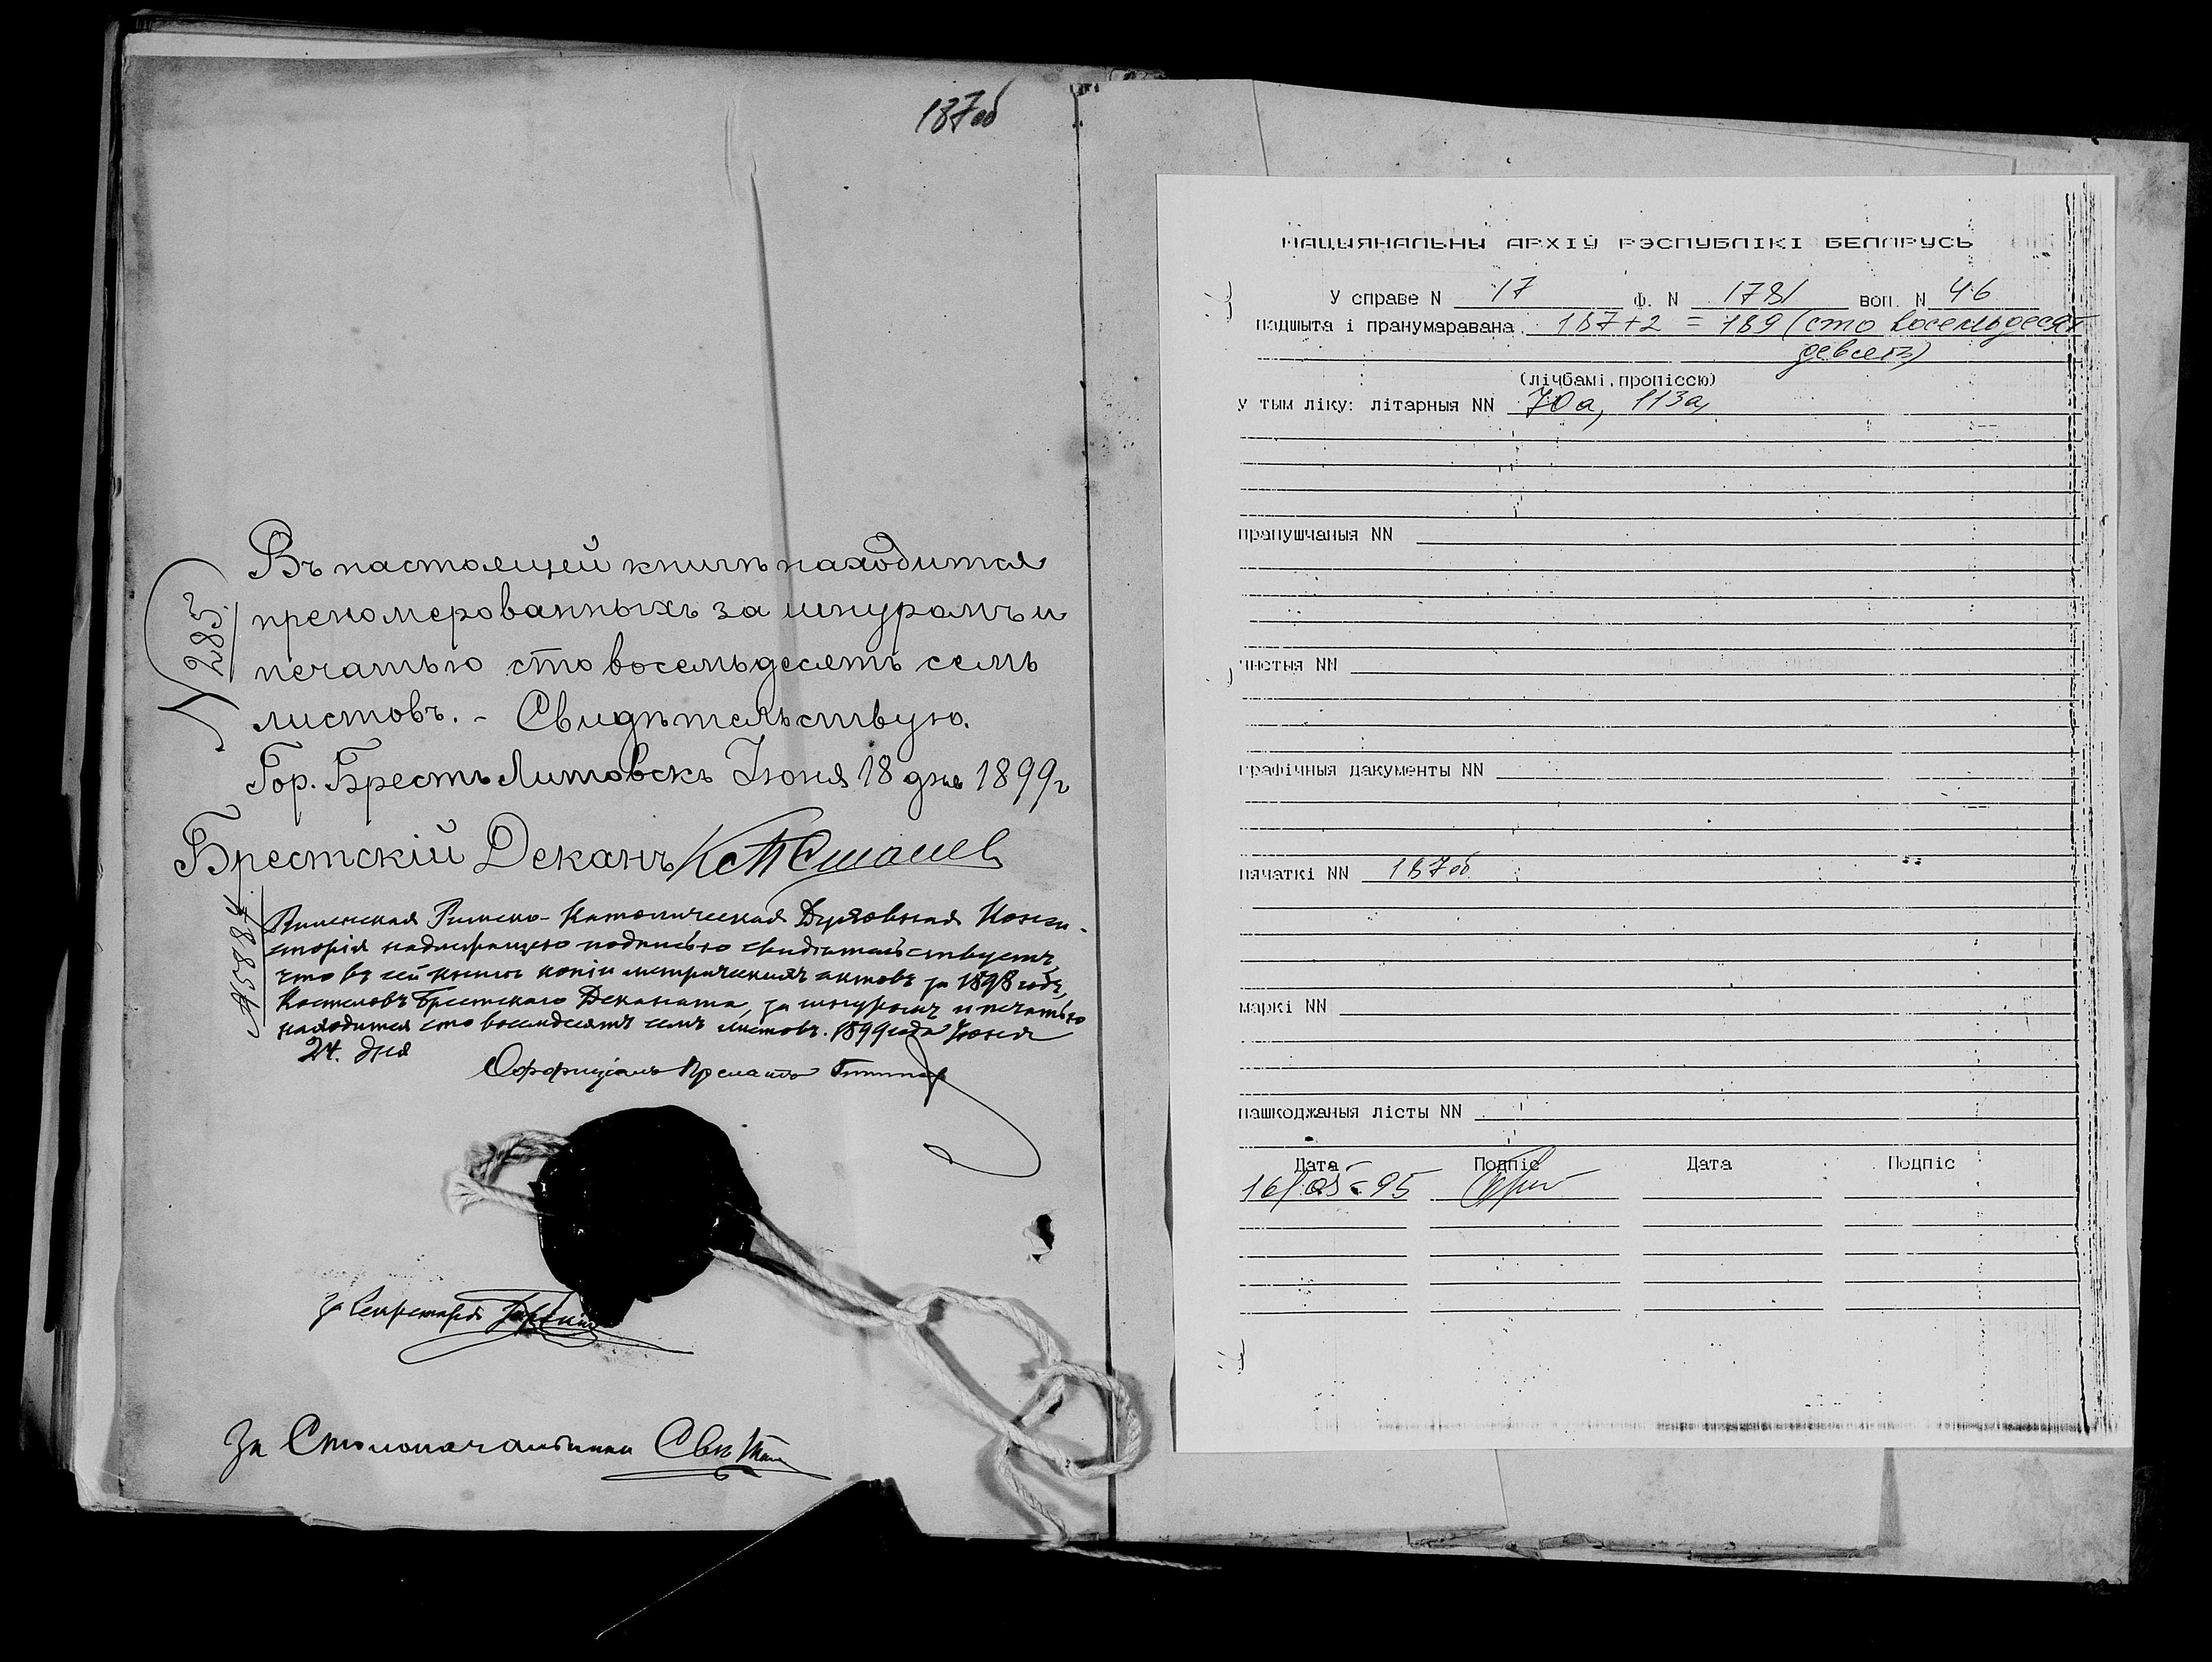 187об
Въ настоящей книгѣ находится
преномерованныхъ за шнуромъ и
печатью сто восемьдесятъ семь
листовъ. - Свидѣтельствую.
Гор. Брестъ Литовскъ Іюня 18 дня 1899 г
№ 285.
Брестскій Деканъ
№ 5884
Виленская Римско-Католическая Духовная Конси-
сторія надлежащею подписью свидѣтельствуетъ,
что въ сей книгѣ копіи метрическихъ актовъ за 1898 годъ,
Костеловъ Брестскаго Деканата, за шнуромъ и печатью
находится сто восемдесятъ семь листовъ. 1899 года Іюня
24. дня
Оффиціалъ Прелатъ
За Секретаря
За Столоначальника
НАЦЫЯНАЛЬНЫ АРХІЎ РЭСПУБЛІКІ БЕЛАРУСЬ
У справе N 17 Ф. N 1781 воп. N 46
падшыта і пранумаравана 187+2 = 189 (сто восемьдесят
девять)
(лічбамі, пропіссю)
у тым ліку: літарныя NN 70а, 113а,
прапушчаныя NN
чыстыя NN
графічныя дакументы NN
пячаткі NN 187об
маркі NN
пашкоджаныя лісты NN
Дата Подпіс Дата Подпіс
16/03-95